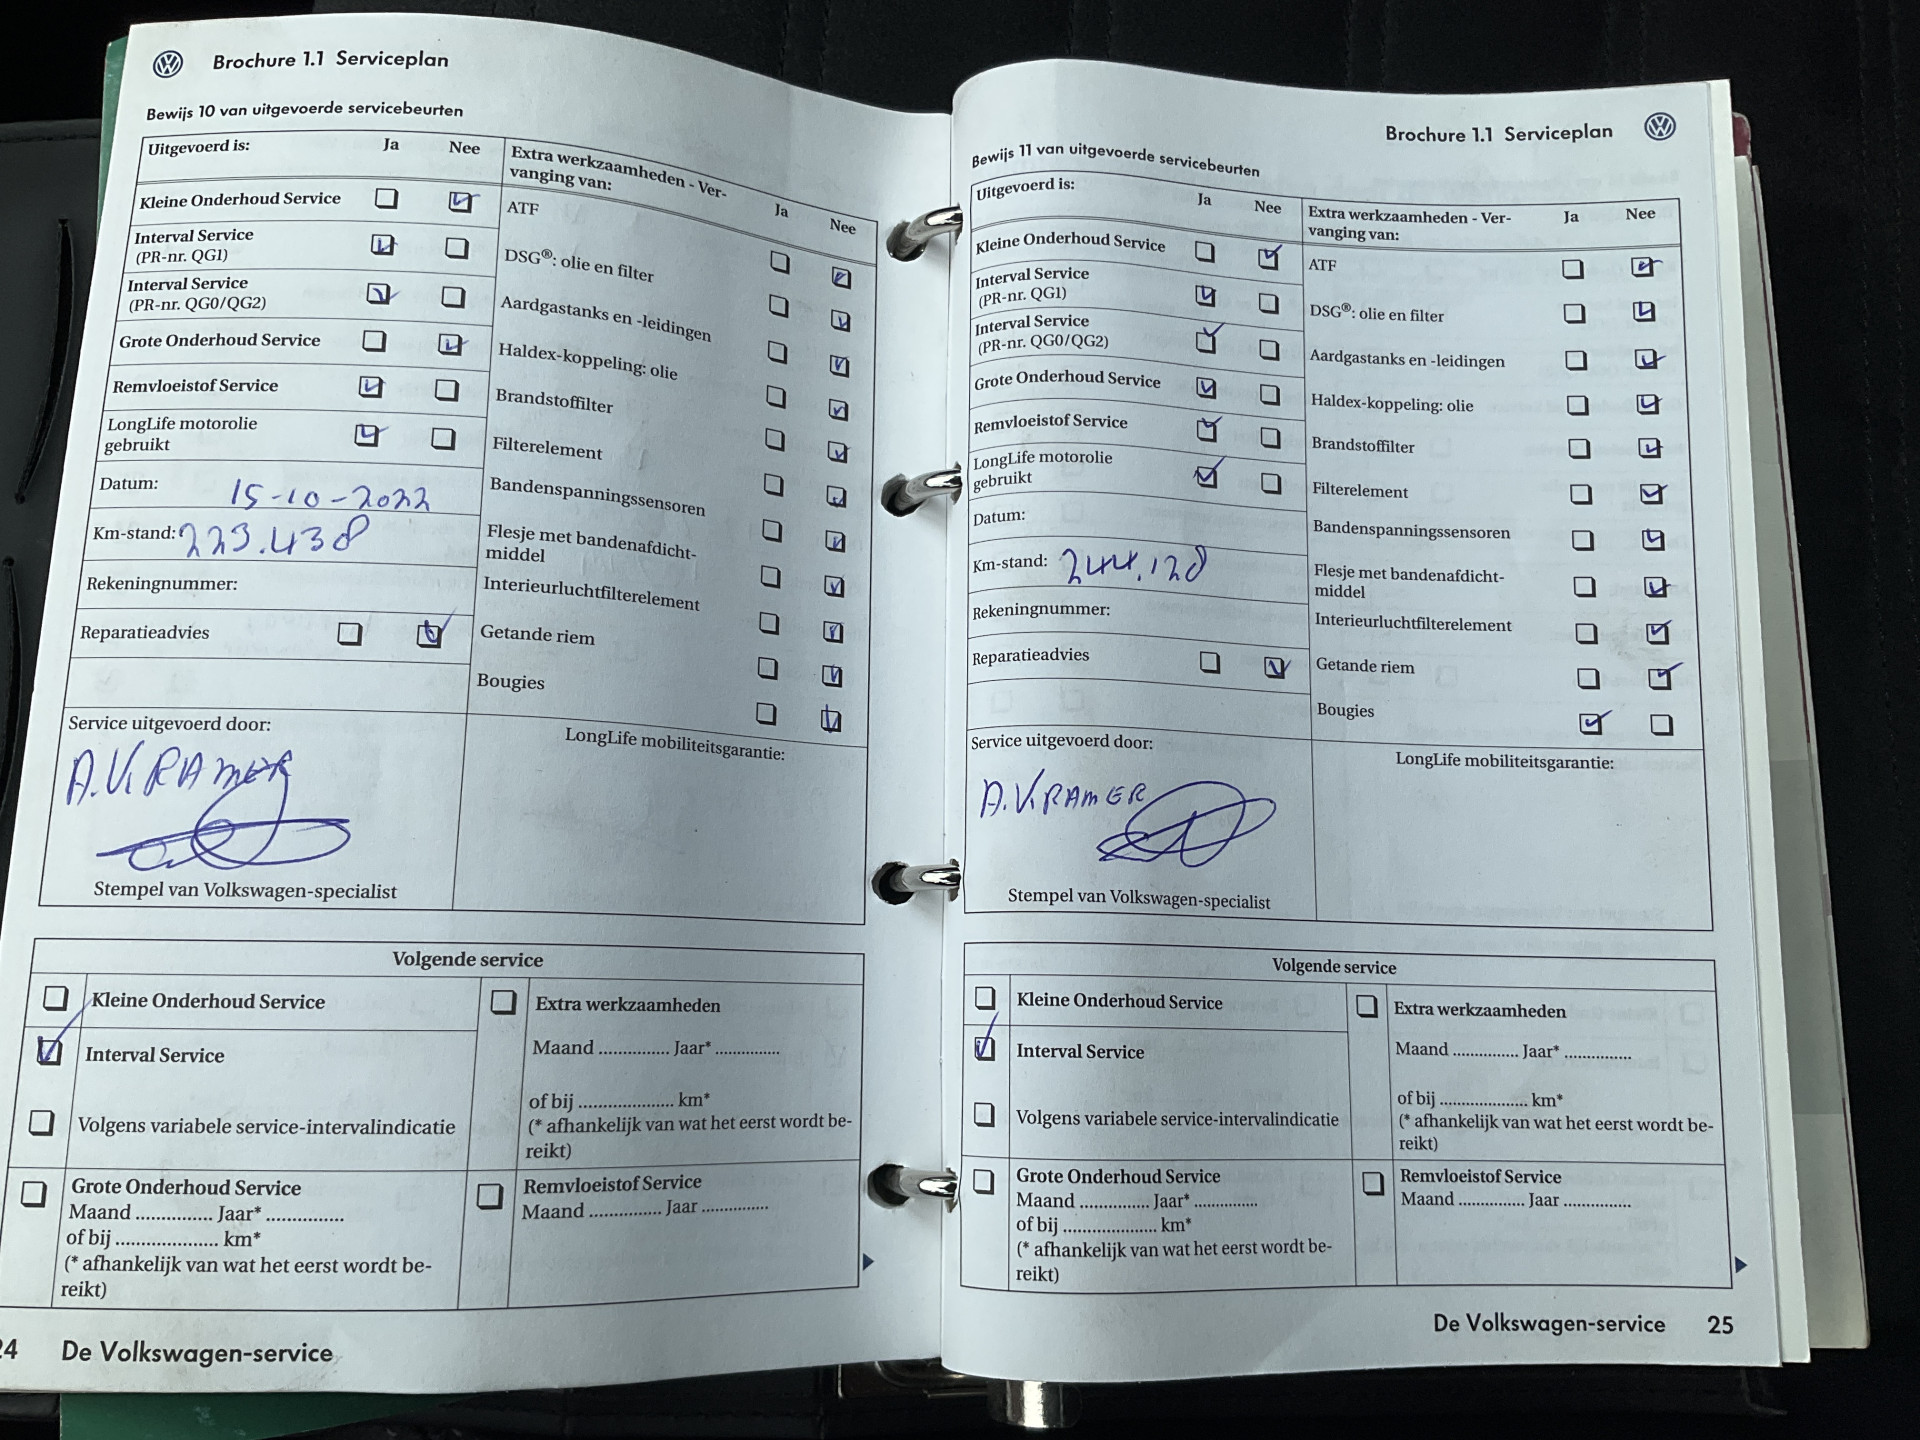 Brochure 1.1 Serviceplan
Bewijs 10 van uitgevoerde servicebeurten
Uitgevoerd is: Ja Nee
Kleine Onderhoud Service
Interval Service
(PR-nr. QG1)
Interval Service
(PR-nr. QG0/QG2)
Grote Onderhoud Service
Remvloeistof Service
LongLife motorolie
gebruikt
Datum: 15-10-2022
Km-stand: 223.438
Rekeningnummer:
Reparatieadvies
Extra werkzaamheden - Ver-
vanging van: Ja Nee
ATF
DSG®: olie en filter
Aardgastanks en -leidingen
Haldex-koppeling: olie
Brandstoffilter
Filterelement
Bandenspanningssensoren
Flesje met bandenafdicht-
middel
Interieurluchtfilterelement
Getande riem
Bougies
Service uitgevoerd door:
A.KRAMER
Stempel van Volkswagen-specialist
LongLife mobiliteitsgarantie:
Volgende service
Kleine Onderhoud Service
Interval Service
Volgens variabele service-intervalindicatie
Grote Onderhoud Service
Maand .............. Jaar* ..............
of bij .................... km*
(* afhankelijk van wat het eerst wordt be-
reikt)
Extra werkzaamheden
Maand .............. Jaar* ..............
of bij .................... km*
(* afhankelijk van wat het eerst wordt be-
reikt)
Remvloeistof Service
Maand .............. Jaar ..............
24 De Volkswagen-service
Brochure 1.1 Serviceplan
Bewijs 11 van uitgevoerde servicebeurten
Uitgevoerd is: Ja Nee
Kleine Onderhoud Service
Interval Service
(PR-nr. QG1)
Interval Service
(PR-nr. QG0/QG2)
Grote Onderhoud Service
Remvloeistof Service
LongLife motorolie
gebruikt
Datum:
Km-stand: 244.128
Rekeningnummer:
Reparatieadvies
Extra werkzaamheden - Ver-
vanging van: Ja Nee
ATF
DSG®: olie en filter
Aardgastanks en -leidingen
Haldex-koppeling: olie
Brandstoffilter
Filterelement
Bandenspanningssensoren
Flesje met bandenafdicht-
middel
Interieurluchtfilterelement
Getande riem
Bougies
Service uitgevoerd door:
A.KRAMER
Stempel van Volkswagen-specialist
LongLife mobiliteitsgarantie:
Volgende service
Kleine Onderhoud Service
Interval Service
Volgens variabele service-intervalindicatie
Grote Onderhoud Service
Maand .............. Jaar* ..............
of bij .................... km*
(* afhankelijk van wat het eerst wordt be-
reikt)
Extra werkzaamheden
Maand .............. Jaar* ..............
of bij .................... km*
(* afhankelijk van wat het eerst wordt be-
reikt)
Remvloeistof Service
Maand .............. Jaar ..............
De Volkswagen-service 25